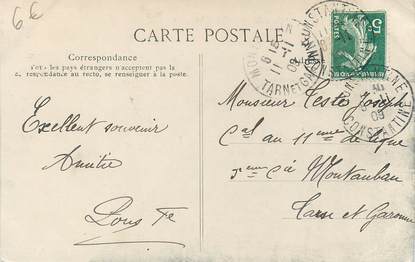 6€
CARTE POSTALE
Correspondance
tous les pays étrangers n'acceptent pas la
correspondance au recto, se renseigner à la poste.
Excellent souvenir
Amitié
5c
POSTES
TARN-ET-GAR
CONSTANTINE
09
Monsieur Teste Joseph
Cal au 11ème de ligne
Cie Montauban
Tarn et Garonne